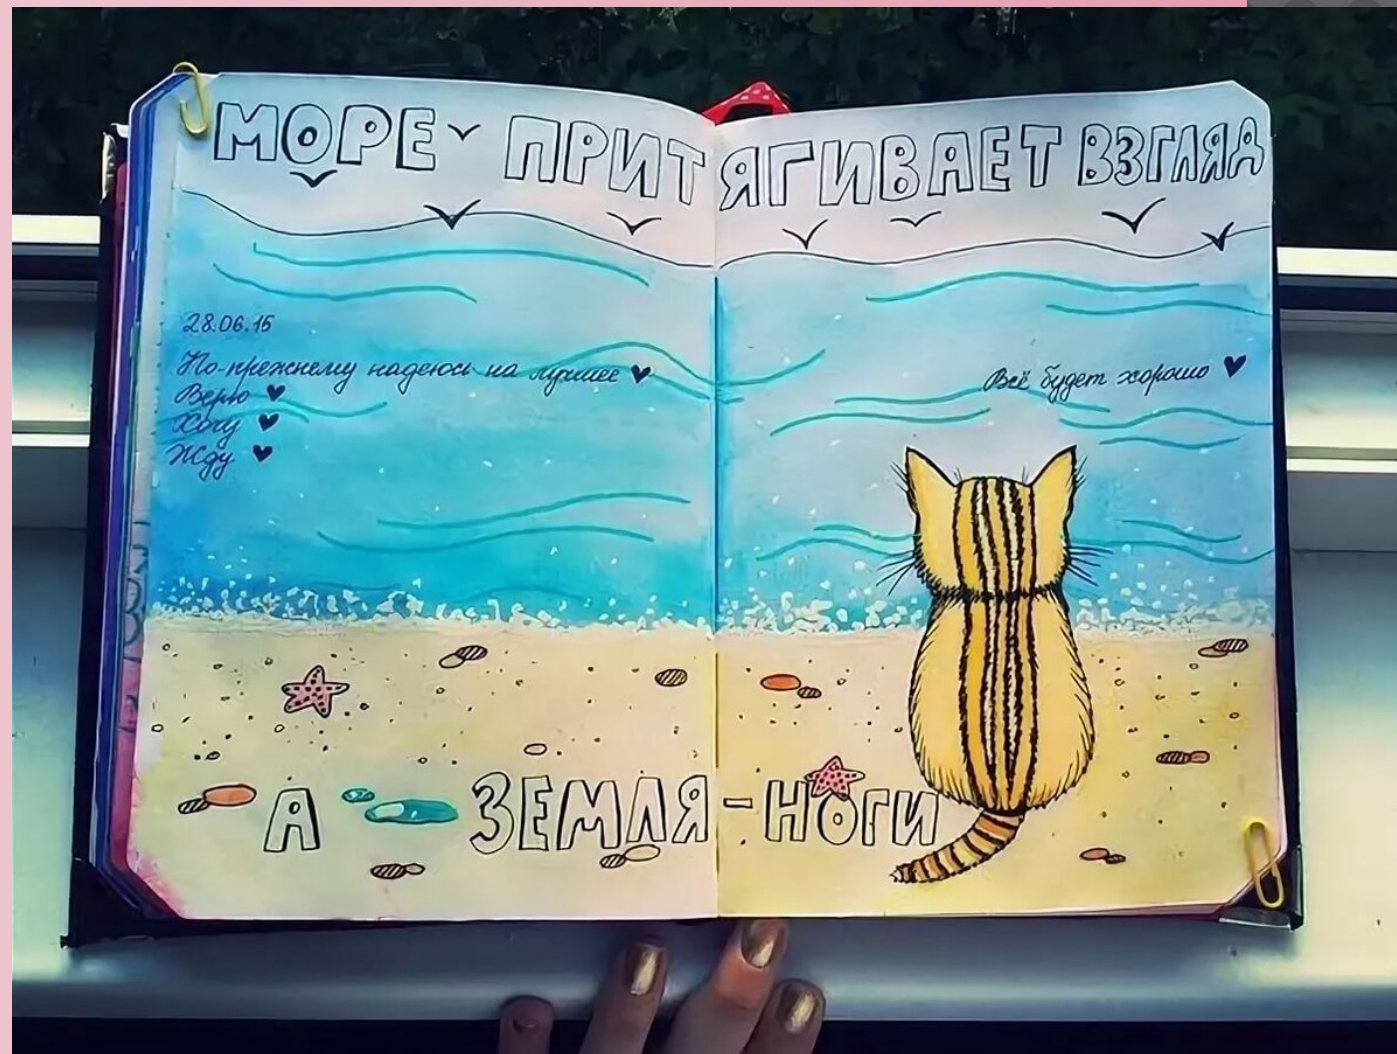 МОРЕ ПРИТЯГИВАЕТ ВЗГЛЯД
28.06.15
По-прежнему надеюсь на лучшее ♥
Верю ♥
Хочу ♥
Жду ♥
Всё будет хорошо ♥
А ЗЕМЛЯ - НОГИ